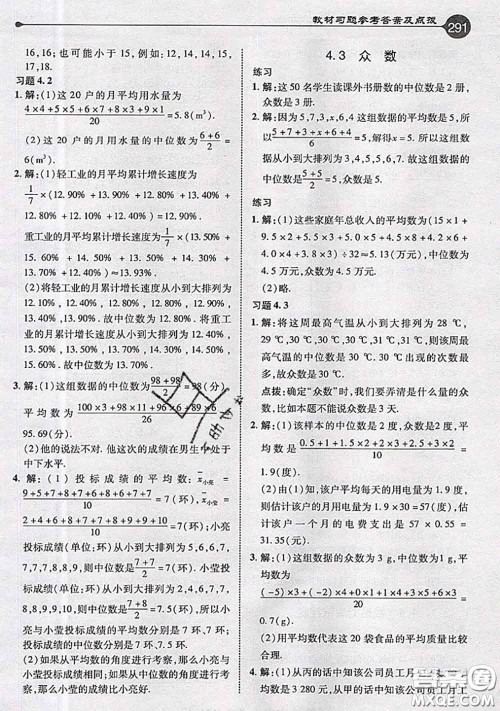 教材习题参考答案及点拨 291
16,16, 也可能是 15,16,也可能是 16,
17,18.
习题4.2
1. 解:(1)这 20 户的月平均用水量为
4×4+5×5+6×7+8×3+9×1/20=5.8(m³).
(2)这 20 户月用水量的中位数为6+6/2=
6(m³).
2. 解:(1)轻工业的月平均累计增长速度为
1/7×(12.90% + 12.90% + 12.90% +
12.80% + 13.40% + 13.70% +
13.90%)≈13.21%,
重工业的月平均累计增长速度为1/7×(13.50% +
15.60% + 14.50% + 13.60% + 13.50% +
13.40% + 13.40%)≈13.93%.
(2)将轻工业的月累计增长速度从小到大排列为
12.80%、12.90%、12.90%、12.90%、13.40%、
13.70%、13.90%. 故中位数为 12.90%. 将重工
业的月累计增长速度从小到大排列为 13.40%、
13.40%、13.50%、13.50%、13.60%、14.50%、
15.60%. 故中位数为 13.50%.
3. 解:(1)这组数据的中位数为98+98/2=98(分)
平均数为100×3+98×11+96×6+89×6/26≈
95.69(分)
(2)他的说法不对. 他这次的成绩在男生中处于
中下水平.
4. 解:(1)投标成绩的平均数: x̄小亮=
9+5+7+8+7+6+8+6+7+7/10=7(环), x̄小莹=
2+4+6+8+7+7+8+9+9+10/10=7(环), 小亮
投标成绩(单位:环)从小到大排列为 5,6,6,7,
7,7,7,8,8,9,则中位数为7+7/2=7(环). 小莹
投标成绩(单位:环)从小到大排列为 2,4,6,7,
7,8,8,9,9,10,则中位数是7+8/2=7.5(环). 所以
小亮与小莹投标成绩的平均数分别是 7 环、7 环;
中位数分别是 7 环、7.5 环.
(2)如果从平均数的角度进行考察,那么小亮、小
莹的成绩一样好. 如果从中位数的角度进行考
察,那么小莹的成绩更好.
4.3 众数
练习
1. 解:这 50 名学生读课外书册数的中位数是 2 册,
众数是 3 册.
2. 解:因为 5,7,3,x,6,4 这组数据的平均数是 5,所
以5+7+3+x+6+4/6=5,解得x=5. 所以这组数
据从小到大排列为 3,4,5,5,6,7. 故这组数据的
中位数是5+5/2=5,众数是 5.
练习
1. 解:(1)这些家庭年总收入的平均数为(15×1+
9.5×2+5.5×3+4.5×5+3.5×4+2.5×
3+1.5×2)÷20≈5.13(万元),中位数是
4.5 万元,众数是 4.5 万元.
(2)略.
习题4.3
1. 解:将这周最高气温从小到大排列为 28 ℃,
29 ℃,30 ℃,30 ℃,30 ℃,31 ℃,31 ℃,则该周最
高气温的中位数是 30 ℃.30 ℃出现的次数最
多,故众数是 30 ℃.
点拨:确定“众数”时,我们要弄清是什么量的众
数,比如本题不能说众数为 3.
2. 解:(1)该样本的中位数是 2 度,众数是 2 度,平
均数是0.5×1+1.5×2+2×5+2.5×2/10=
1.9(度).
(2)由于该户平均每天的用电量为 1.9 度,
则估计该户六月的用电量为 1.9 度,估
计该户一个月的电费支出是 57×0.55=
31.35(元).
3. 解:(1)这组数据的众数为1 g,中位数为1 g,
平均数是
(-5)×1+(-2)×4+0×3+1×5+3×4+6×3/20=
(2)用平均数代表这 20 袋食品的平均质量比较
合理.
4. 解:(1)从丙的话中知该公司员工月工
数是 3 280 元,从甲的话中知该公司员工月工
答案圈
MXQE.COM